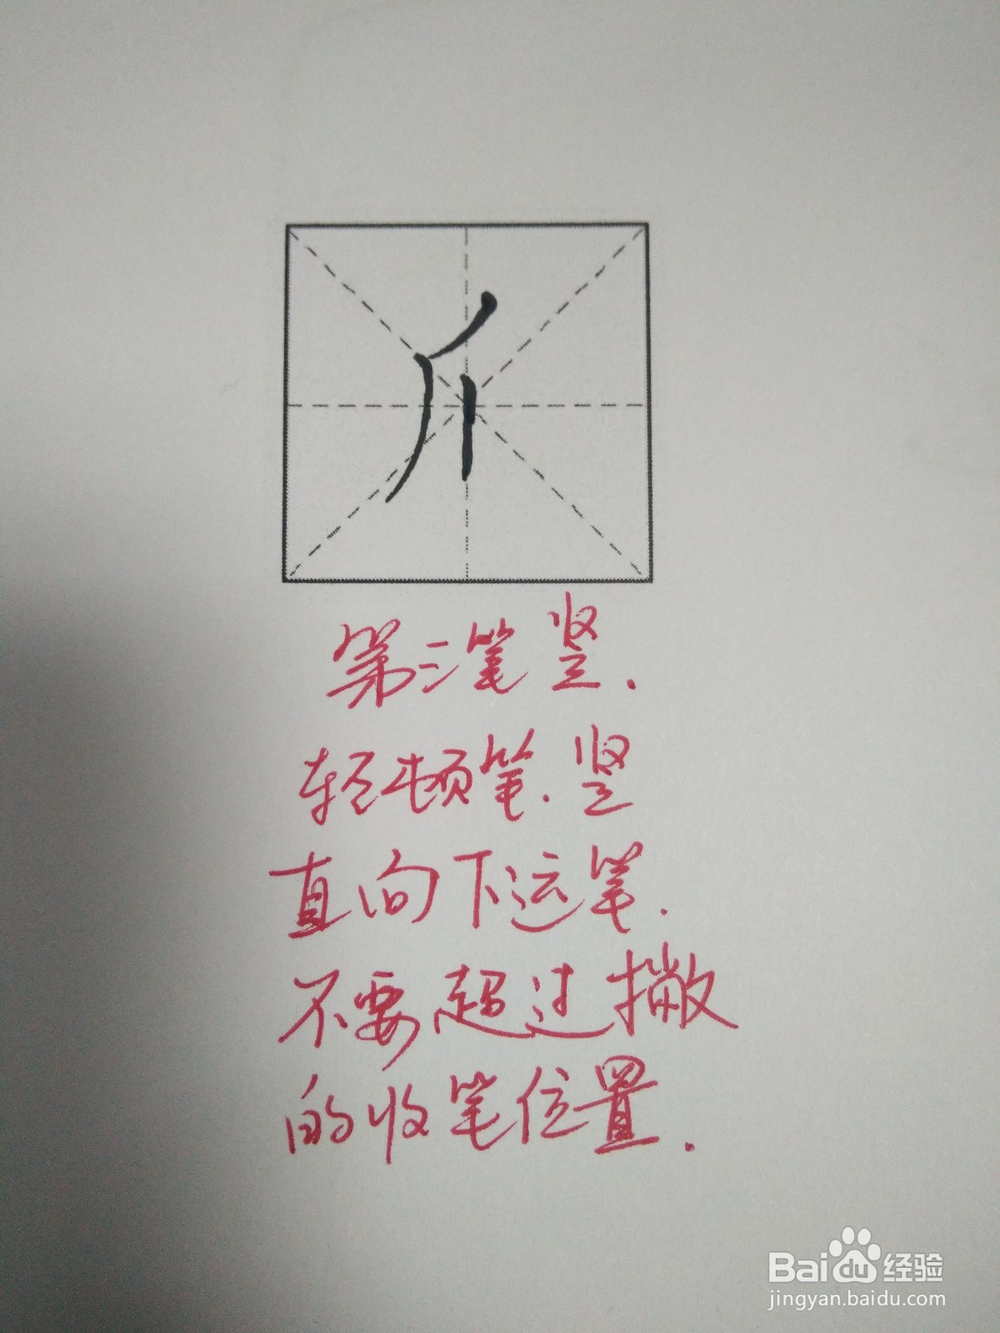 第三笔竖.
轻顿笔.竖
直向下运笔.
不要超过撇
的收笔位置.
Baidu经验
jingyan.baidu.com